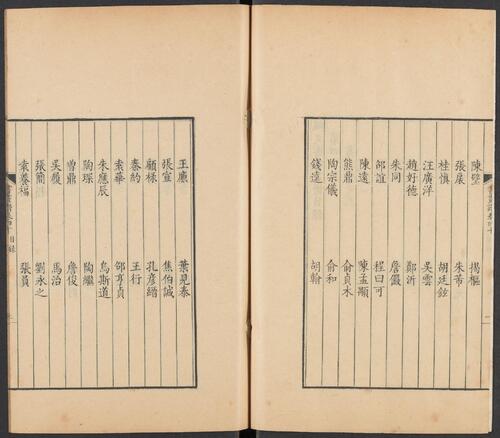 陳璧 揭樞
張扆 朱芾
桂慎 胡廷鉉
汪廣洋 吳雲
趙好德 鄭沂
朱同 詹儼
邰誼 程曰可
陳遠 陳孟顒
熊鼎 俞貞木
陶宗儀 俞和
錢逵 胡翰
王廉 葉見泰
張宣 焦伯誠
顧祿 孔彥縉
秦約 王行
袁華 邵亨貞
朱應辰 烏斯道
陶琛 陶繼
曾鼎 詹俊
吳褧 馬治
張簡 劉永之
袁養福 張員
目錄